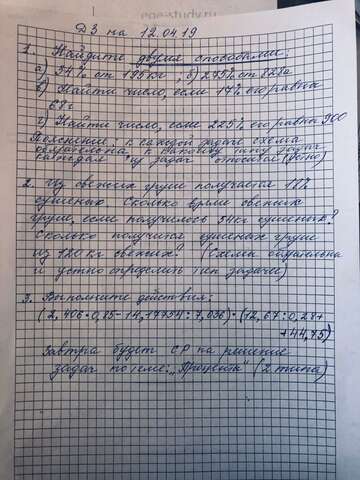 ege-study.ru
ДЗ на 12.04.19
1. Найдите двумя способами:
а) 34% от 196кг; б) 295% от 828а
в) Найти число, если 17% его равна
68г
г) Найти число, если 225% его равны 900
Пояснение: к каждой задаче схема
обязательна, к какому типу задач
из задач относится (устно)
2. Из свежих груш получается
сушеных. Сколько взяли свежих
груш, если получилось 54кг сушеных?
Сколько получится сушеных груш
из 720кг свежих? (Схема обязательна
и устно определить тип задачи)
3. Выполните действия:
(2,406:0,85-14,17754:7,036)·(12,67:0,28+
+44,75)
Завтра будет СР на решение
задач по теме: „Проценты" (2 типа)